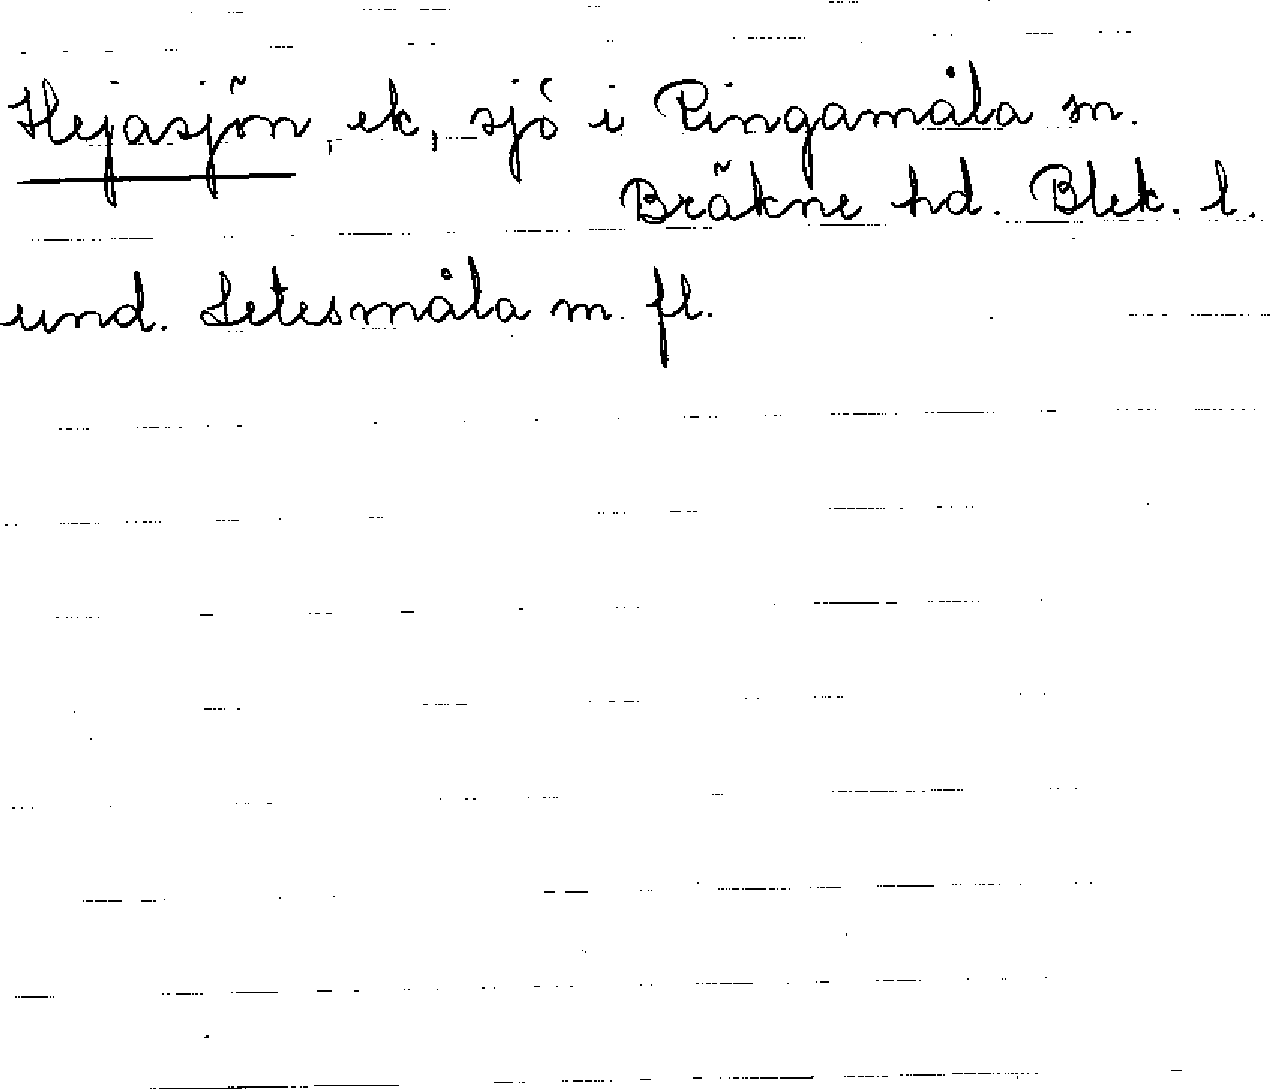 Hejasjön, ek, sjö i Ringamåla sn.
Bräkne hd. Blek. l.
und. Letesmåla m. fl.